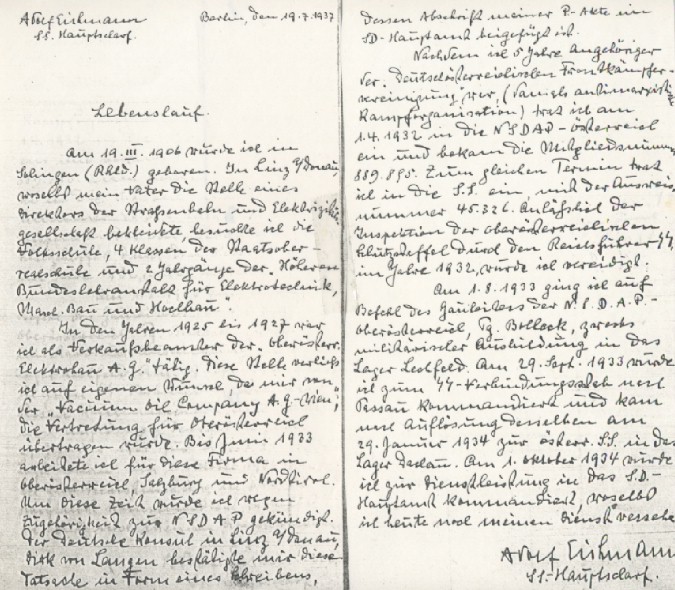 Adolf Eichmann
SS. Hauptscharf.
Berlin, den 19.7.1937
Lebenslauf.
Am 19. III. 1906 wurde ich in
Solingen (Rhld.) geboren. In Linz a/Donau
woselbst mein Vater die Stelle eines
Direktors der Straßenbahn und Elektrizitäts-
gesellschaft bekleidete besuchte ich die
Volksschule, 4 Klassen der Staatsober-
realschule und 2 Jahrgänge der "Höheren
Bundeslehranstalt für Elektrotechnik,
Masch. Bau und Hochbau".
In den Jahren 1925 bis 1927 war
ich als Verkaufsbeamter der "oberösterr.
Elektrobau A.G." tätig. Diese Stelle verließ
ich auf eigenen Wunsch, da mir von
der "Vacuum Oil Company A.G.-Wien",
die Vertretung für Oberösterreich
übertragen wurde. Bis Juni 1933
arbeitete ich für diese Firma in
Oberösterreich, Salzburg und Nordtirol.
Um diese Zeit wurde ich wegen
Zugehörigkeit zur NSDAP gekündigt.
Der Deutsche Konsul in Linz a/Donau,
Dirk von Langen bestätigte mir diese
Tatsache in Form eines Schreibens,
dessen Abschrift meiner P-Akte im
SD-Hauptamt beigefügt ist.
Nachdem ich 5 Jahre Angehöriger
der "Deutschösterreichischen Frontkämpfer-
vereinigung" war, (damals antimarxistische
Kampforganisation) trat ich am
1.4.1932 in die NSDAP-Österreich
ein und bekam die Mitgliedsnummer
889.895. Zum gleichen Termin trat
ich in die S.S. ein, mit der Ausweis-
nummer 45.326. Anläßlich der
Inspektion der oberösterreichischen
Schutzstaffel durch den Reichsführer SS
im Jahre 1932, wurde ich vereidigt.
Am 1.8.1933 ging ich auf
Befehl des Gauleiters der N.S.D.A.P.-
Oberösterreich, Pg. Bolleck, zwecks
militärischer Ausbildung in das
Lager Lechfeld. Am 29. Sept. 1933 wurde
ich zum SS-Verbindungsstab nach
Passau kommandiert und kam
nach Auflösung desselben am
29. Januar 1934 zur österr. S.S. in das
Lager Dachau. Am 1. Oktober 1934 wurde
ich zur Dienstleistung in das S.D.-
Hauptamt kommandiert, woselbst
ich heute noch meinen Dienst versehe.
Adolf Eichmann
SS-Hauptscharf.